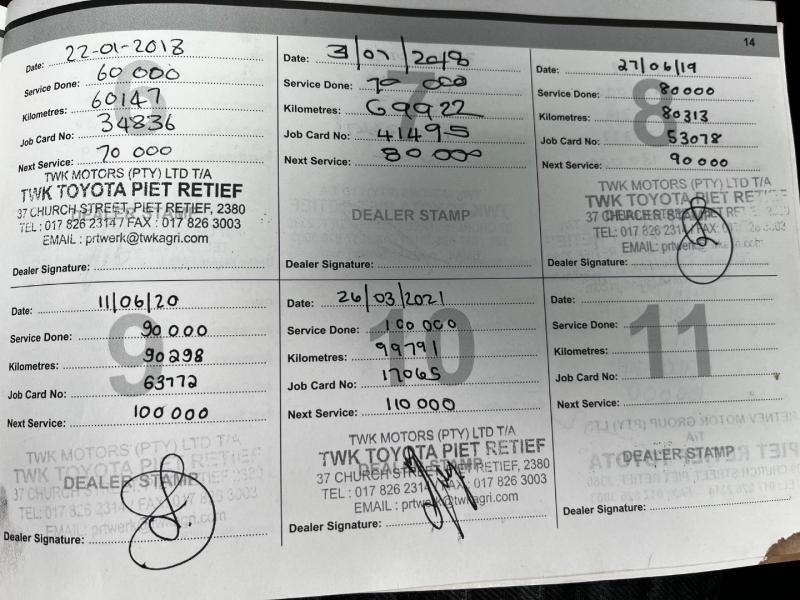 14
6
Date: 22-01-2018
Service Done: 60 000
Kilometres: 60147
Job Card No: 34836
Next Service: 70 000
TWK MOTORS (PTY) LTD T/A
TWK TOYOTA PIET RETIEF
37 CHURCH STREET, PIET RETIEF, 2380
DEALER STAMP
TEL : 017 826 2314 / FAX : 017 826 3003
EMAIL : prtwerk@twkagri.com
Dealer Signature:
7
Date: 3/07/2018
Service Done: 70 000
Kilometres: 69922
Job Card No: 41495
Next Service: 80 000
DEALER STAMP
Dealer Signature:
8
Date: 27/06/19
Service Done: 80000
Kilometres: 80313
Job Card No: 53078
Next Service: 90 000
TWK MOTORS (PTY) LTD T/A
TWK TOYOTA PIET RETIEF
DEALER STAMP
Dealer Signature:
9
Date: 11/06/20
Service Done: 90 000
Kilometres: 90298
Job Card No: 63772
Next Service: 100 000
TWK MOTORS (PTY) LTD T/A
TWK TOYOTA PIET RETIEF
DEALER STAMP
TEL: 017 826 2314 / FAX : 017 826 3003
EMAIL : prtwerk@twkagri.com
Dealer Signature:
10
Date: 26/03/2021
Service Done: 100 000
Kilometres: 99791
Job Card No: 17065
Next Service: 110 000
TWK MOTORS (PTY) LTD T/A
TWK TOYOTA PIET RETIEF
DEALER STAMP
37 CHURCH STREET, PIET RETIEF, 2380
TEL : 017 826 2314 / FAX : 017 826 3003
EMAIL : prtwerk@twkagri.com
Dealer Signature:
11
Date:
Service Done:
Kilometres:
Job Card No:
Next Service:
DEALER STAMP
Dealer Signature: